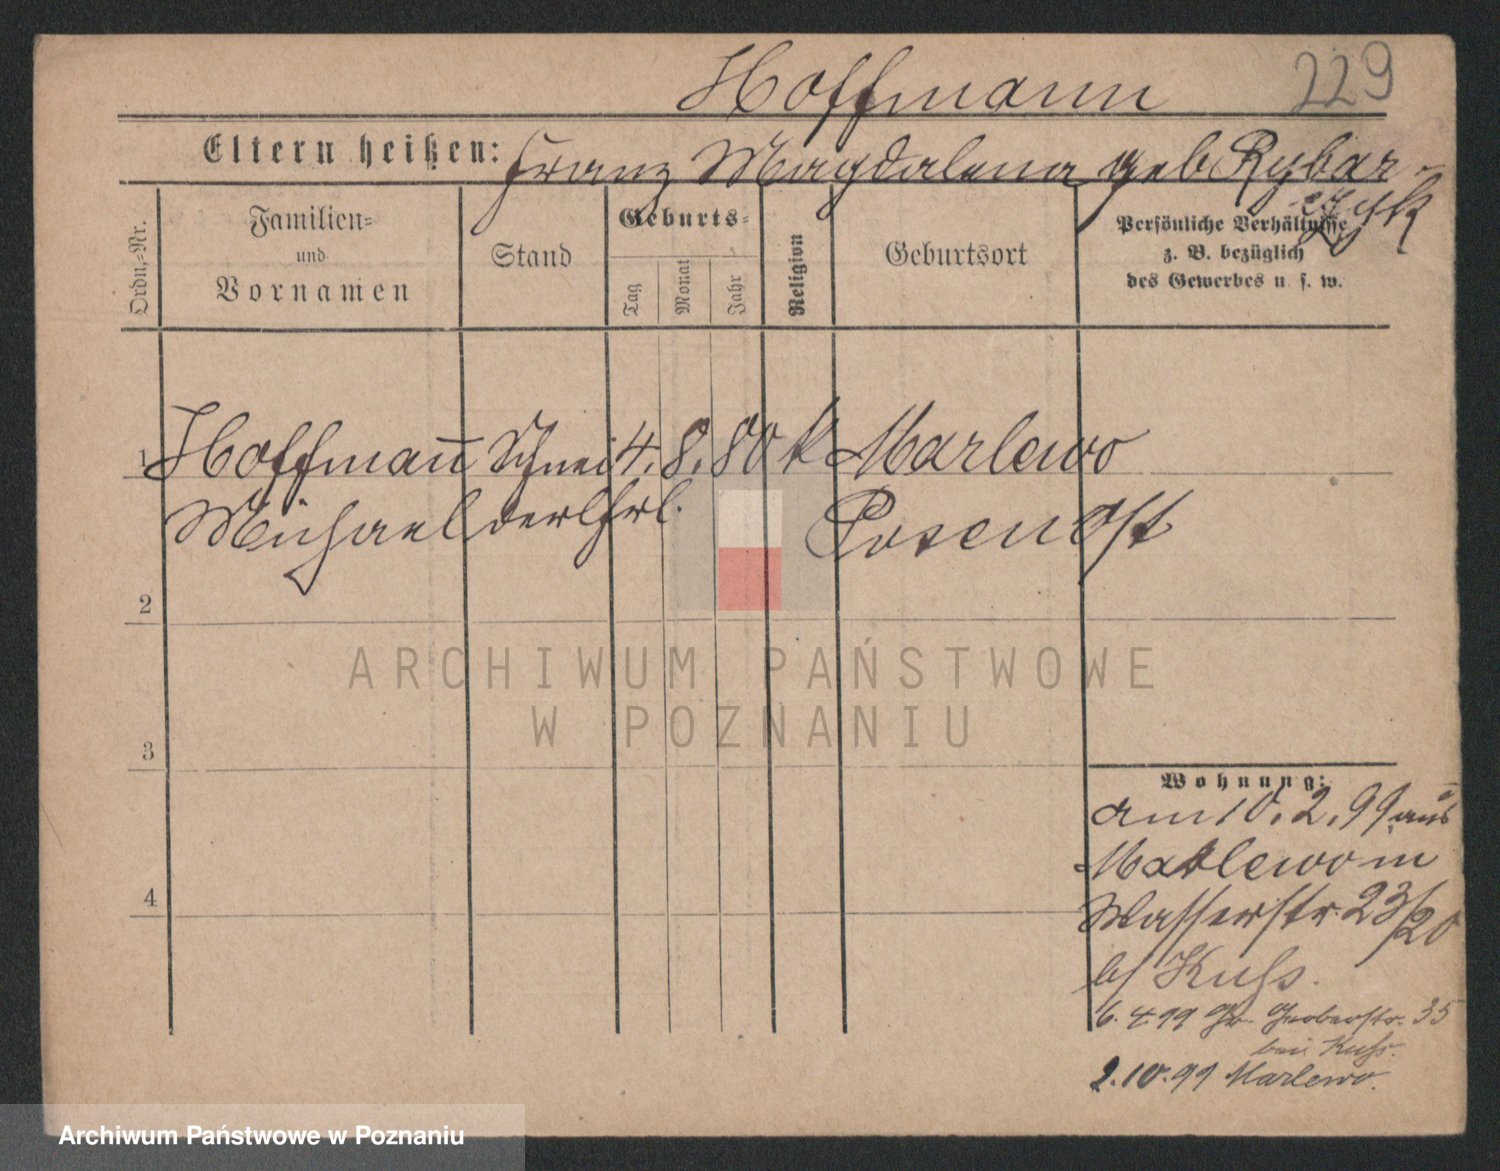 Hoffmann 229
Eltern heißen: Franz Magdalena geb Rybar-
czyk
Ordn.=Nr.
Familien=
und
Vornamen
Stand
Geburts=
Tag
Monat
Jahr
Religion
Geburtsort
Persönliche Verhältnisse
z. B. bezüglich
des Gewerbes u. s. w.
1 Hoffmann̄ Schnei 4. 8. 80 k Marlewo
Michael derlhrl. Posen Ost
2
3
4
Wohnung:
am 10. 2. 99 aus
Marlewo in
Wasserstr. 23/20
b/ Kuss.
6. 4 99 Gr. Gerberstr. 35
bei Kuss.
2. 10. 99 Marlewo.
ARCHIWUM PAŃSTWOWE
W POZNANIU
Archiwum Państwowe w Poznaniu